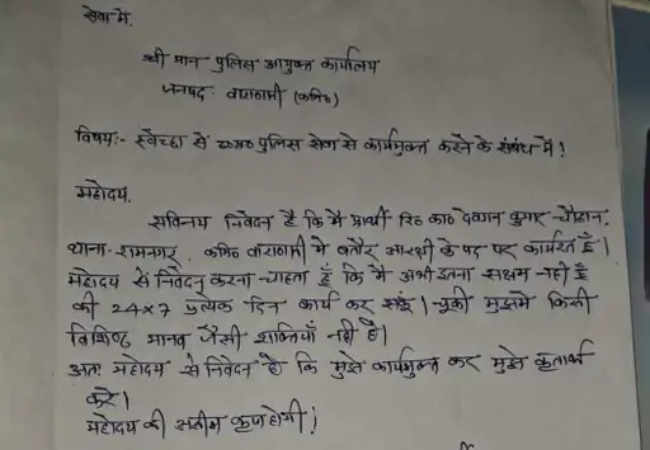 सेवा में,
श्री मान पुलिस आयुक्त कार्यालय
जनपद- वाराणसी (कमि०)
विषय:- स्वेच्छा से उ०प्र० पुलिस सेवा से कार्यमुक्त करने के संबंध में!
महोदय,
सविनय निवेदन है कि मै प्रार्थी रि० का० देवगन कुमार चौहान,
थाना- रामनगर, कमि० वाराणसी मे बतौर आरक्षी के पद पर कार्यरत हूँ।
महोदय से निवेदन करना चाहता हूँ कि मै अभी इतना सक्षम नही हूँ
की 24x7 प्रत्येक दिन कार्य कर सकूं। चूकी मुझमे किसी
विशिष्ट मानव जैसी शक्तियाँ नही है।
अतः महोदय से निवेदन है कि मुझे कार्यमुक्त कर मुझे कृतार्थ
करे।
महोदय की असीम कृपा होगी!